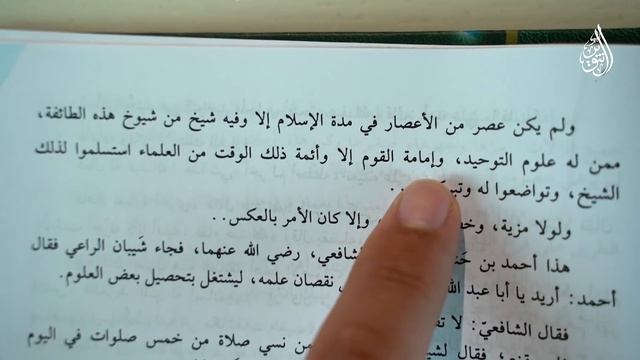 ولم يكن عصر من الأعصار في مدة الإسلام إلا وفيه شيخ من شيوخ هذه الطائفة،
ممن له علوم التوحيد، وإمامة القوم إلا وأئمة ذلك الوقت من العلماء استسلموا لذلك
الشيخ، وتواضعوا له
ولولا مزية، وإلا كان الأمر بالعكس..
هذا أحمد بن الشافعي، رضي الله عنهما، فجاء شَيبان الراعي فقال
أحمد: أريد يا أبا عبد نقصان علمه، ليشتغل بتحصيل بعض العلوم.
فقال الشافعيّ: لا من نسي صلاة من خمس صلوات في اليوم
فقال